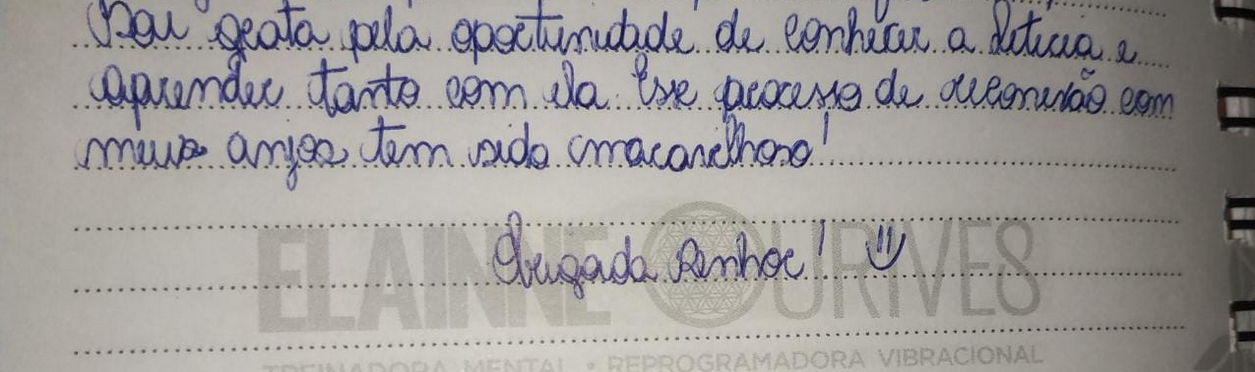 Sou grata pela oportunidade de conhecer a Leticia e
aprender tanto com ela. Esse processo de reconexão com
meus anjos tem sido maravilhoso!
Obrigada Senhor!
ELAINNE OURIVES
TREINADORA MENTAL • REPROGRAMADORA VIBRACIONAL